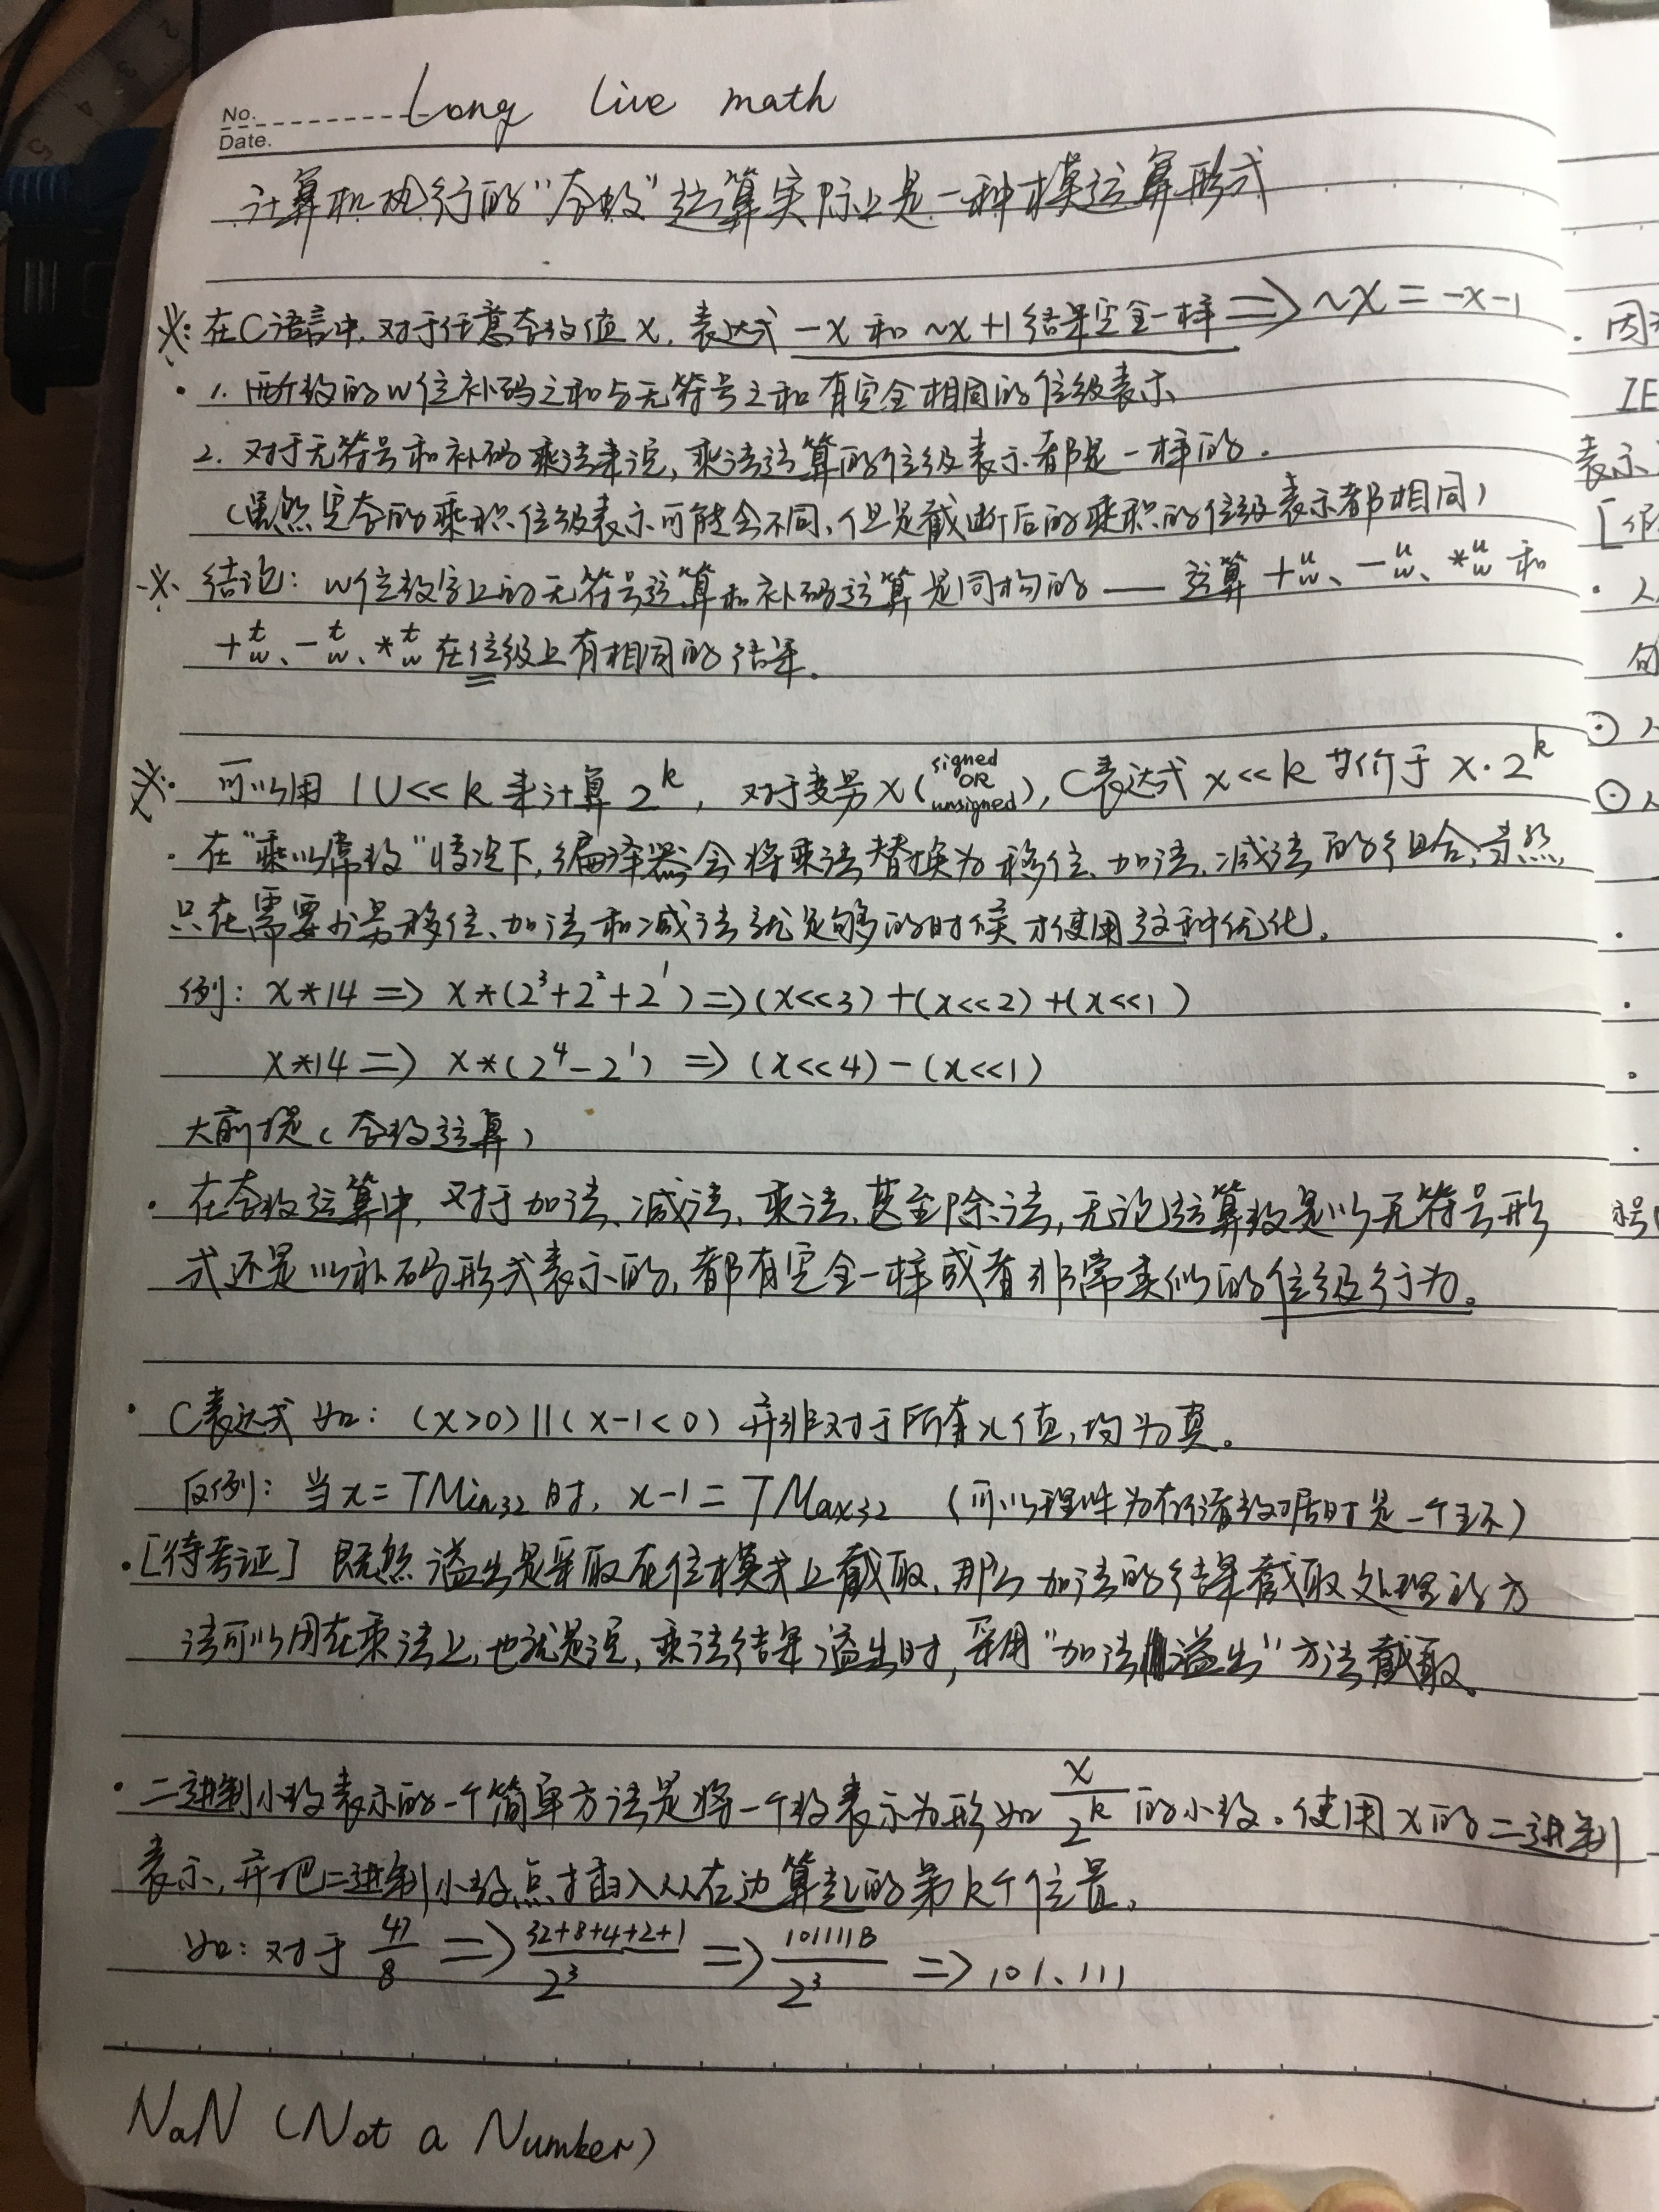 No. Long live math
Date.
计算机执行的“整数”运算实际上是一种模运算形式
※: 在C语言中, 对于任意整数值 x, 表达式 -x 和 ~x+1 结果完全一样 => ~x = -x-1
· 1. 两个数的 w位补码之和与无符号之和有完全相同的位级表示
2. 对于无符号和补码乘法来说, 乘法运算的位级表示都是一样的.
(虽然完整的乘积位级表示可能会不同, 但是截断后的乘积的位级表示都相同)
※ 结论: w位数字上的无符号运算和补码运算是同构的 —— 运算 +ᵘw、-ᵘw、*ᵘw 和
+ᵗw、-ᵗw、*ᵗw 在位级上有相同的结果.
※. 可以用 1U<<k 来计算 2^k, 对于变量 x (signed OR unsigned), C表达式 x<<k 等价于 x·2^k
· 在“乘以常数”情况下, 编译器会将乘法替换为移位、加法、减法的组合, 当然,
只在需要少量移位、加法和减法就足够的时候才使用这种优化.
例: x*14 => x*(2³+2²+2¹) => (x<<3)+(x<<2)+(x<<1)
x*14 => x*(2⁴-2¹) => (x<<4)-(x<<1)
大前提 (整数运算)
· 在整数运算中, 对于加法、减法、乘法, 甚至除法, 无论运算数是以无符号形
式还是以补码形式表示的, 都有完全一样或者非常类似的位级行为。
· C表达式 如: (x>0)||(x-1<0) 并非对于所有x值, 均为真。
反例: 当 x=TMin32 时, x-1=TMax32 (可以理解为存储数据时是一个环)
· [待考证] 既然溢出是采取在位模式上截取, 那么加法的结果截取处理的方
法可以用在乘法上, 也就是说, 乘法结果溢出时, 采用“加法溢出”方法截取。
· 二进制小数表示的一个简单方法是将一个数表示为形如 x/2^k 的小数。使用 x 的二进制
表示, 并把二进制小数点插入从右边算起的第k个位置。
如: 对于 47/8 => (32+8+4+2+1)/2³ => 101111B/2³ => 101.111
NaN (Not a Number)